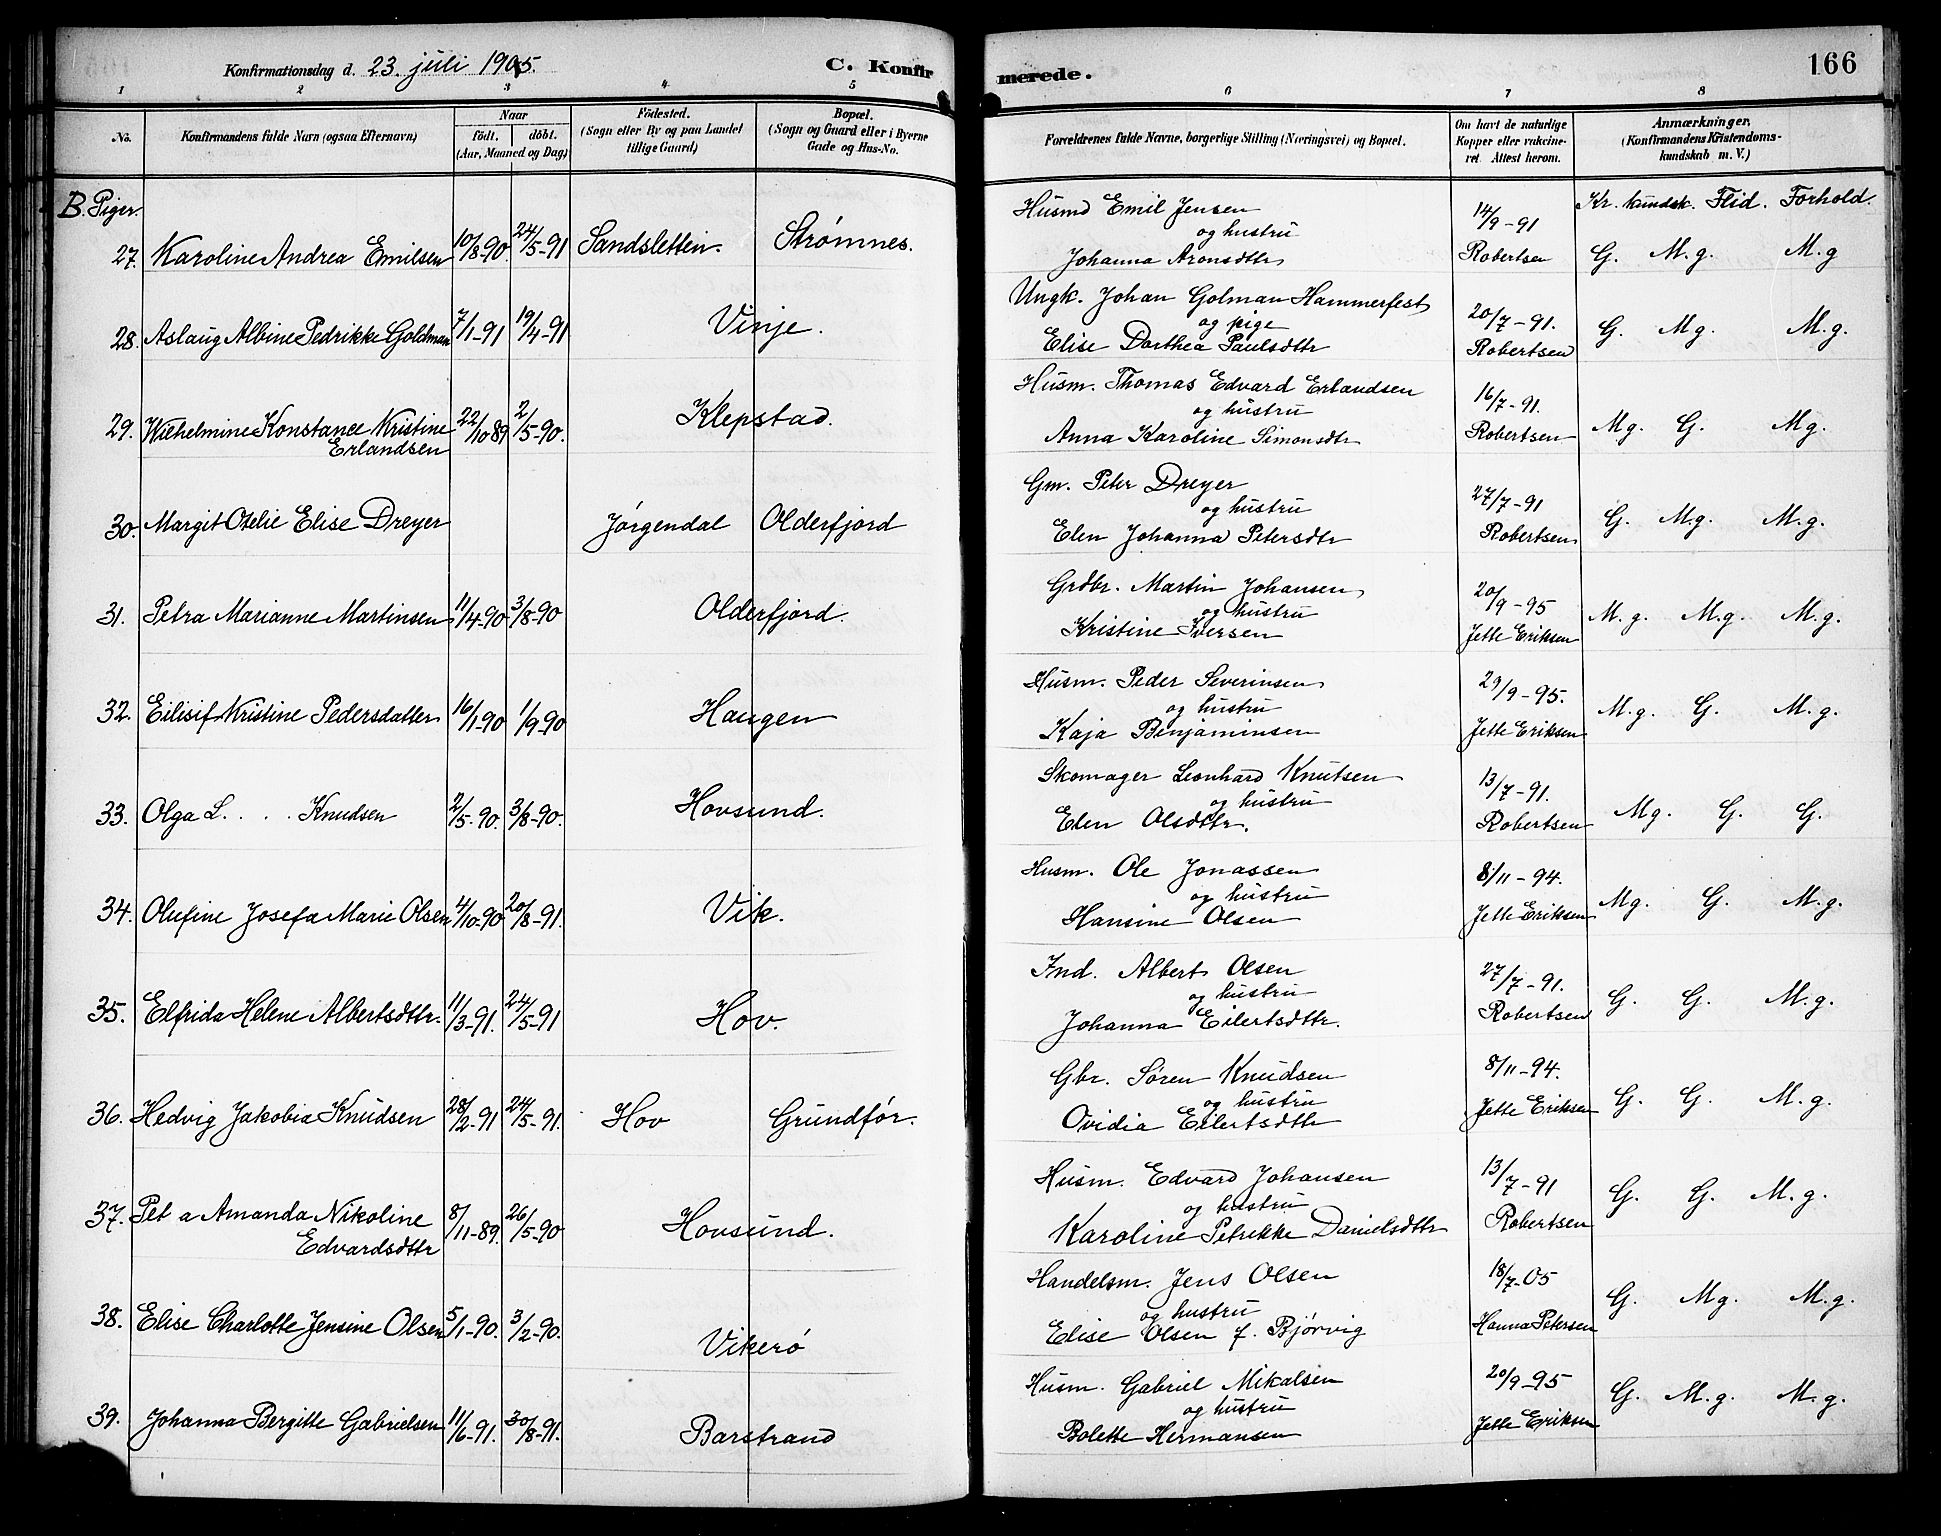 Konfirmationsdag d. 23. juli 1905.
C. Konfirmerede.
166
1 2 3 4 5 6 7 8
No. Konfirmandens fulde Navn (ogsaa Efternavn) Naar født. døbt. (Aar, Maaned og Dag) Fødested. (Sogn eller By og paa Landet tillige Gaard) Bopæl. (Sogn og Gaard eller i Byerne Gade og Hus-No.
Forældrenes fulde Navne, borgerlige Stilling (Næringsvei) og Bopæl. Om havt de naturlige Kopper eller vakcineret. Attest herom. Anmærkninger. (Konfirmandens Kristendomskundskab m. V.)
B. Piger.
Kr. kundsk. Flid. Forhold.
27. Karoline Andrea Emilsen 10/8-90. 24/5-91 Sandsletten. Strømnes.
Husmd Emil Jensen
og hustru
Johanna Aronsdttr
14/9-91
Robertsen
G. M.g. M.g
28. Aslaug Albine Pedrikke Goldman 7/1-91 19/4-91 Vinje.
Ungk. Johan Golman Hammerfest
og pige
Elise Dorthea Paulsdttr
20/7-91.
Robertsen
G. Mg. M.g.
29. Wilhelmine Konstance Kristine
Erlandsen
22/10 89 2/5-90. Klepstad.
Husm. Thomas Edvard Erlandsen
og hustru
Anna Karoline Simonsdtr
16/7-91.
Robertsen
Mg. G. Mg.
30. Margit Otelie Elise Dreyer Jørgendal Olderfjord
Gm. Peter Dreyer
og hustru
Elen Johanna Petersdtr
27/7-91
Robertsen
G. M.g. M.g.
31. Petra Marianne Martinsen 11/4-90 3/8-90 Olderfjord.
Grdbr. Martin Johansen
og hustru
Kristine Iversen
20/9-95
Jette Eriksen
M.g. M.g. M.g.
32. Eilisif Kristine Pedersdatter 16/1-90 1/9-90 Haugen
Husm. Peder Severinsen
og hustru
Kaja Benjaminsen
29/9-95.
Jette Eriksen
M.g. G. M.g.
33. Olga L. . . . Knudsen 2/5-90. 3/8-90. Hovsund.
Skomager Leonhard Knutsen
og hustru
Elen Olsdttr.
13/7-91.
Robertsen
Mg. G. G.
34. Olufine Josefa Marie Olsen 4/10-90 20/8-91. Vik.
Husm. Ole Jonassen
og hustru
Hansine Olsen
8/11-94.
Jette Eriksen
Mg. G. M.g.
35. Elfrida Helene Albertsdttr. 11/3-91. 24/5-91 Hov.
Ind. Albert Olsen
og hustru
Johanna Eilertsdttr.
27/7-91.
Robertsen
G. G. M.g.
36. Hedvig Jakobia Knudsen 28/2-91 24/5-91. Hov Grundfør.
Gbr. Søren Knudsen
og hustru
Ovidia Eilertsdttr
8/11-94.
Jette Eriksen
G. G. M.g.
37. Pet a Amanda Nikoline
Edvardsdttr
8/11-89. 26/5-90 Hovsund.
Husm. Edvard Johansen
og hustru
Karoline Petrikke Danielsdttr
13/7-91
Robertsen
G. G. M.g.
38. Elise Charlotte Jensine Olsen 5/1-90. 3/2-90. Vikerø
Handelsm. Jens Olsen
og hustru
Elise Olsen f. Bjørvig
18/7-05
Hanna Petersen
G. Mg. M.g.
39. Johanna Bergitte Gabrielsen 11/6-91. 30/8-91. Barstrand
Husm. Gabriel Mikalsen
og hustru
Bolette Hermansen
20/9-95
Jette Eriksen
G. M.g. M.g.